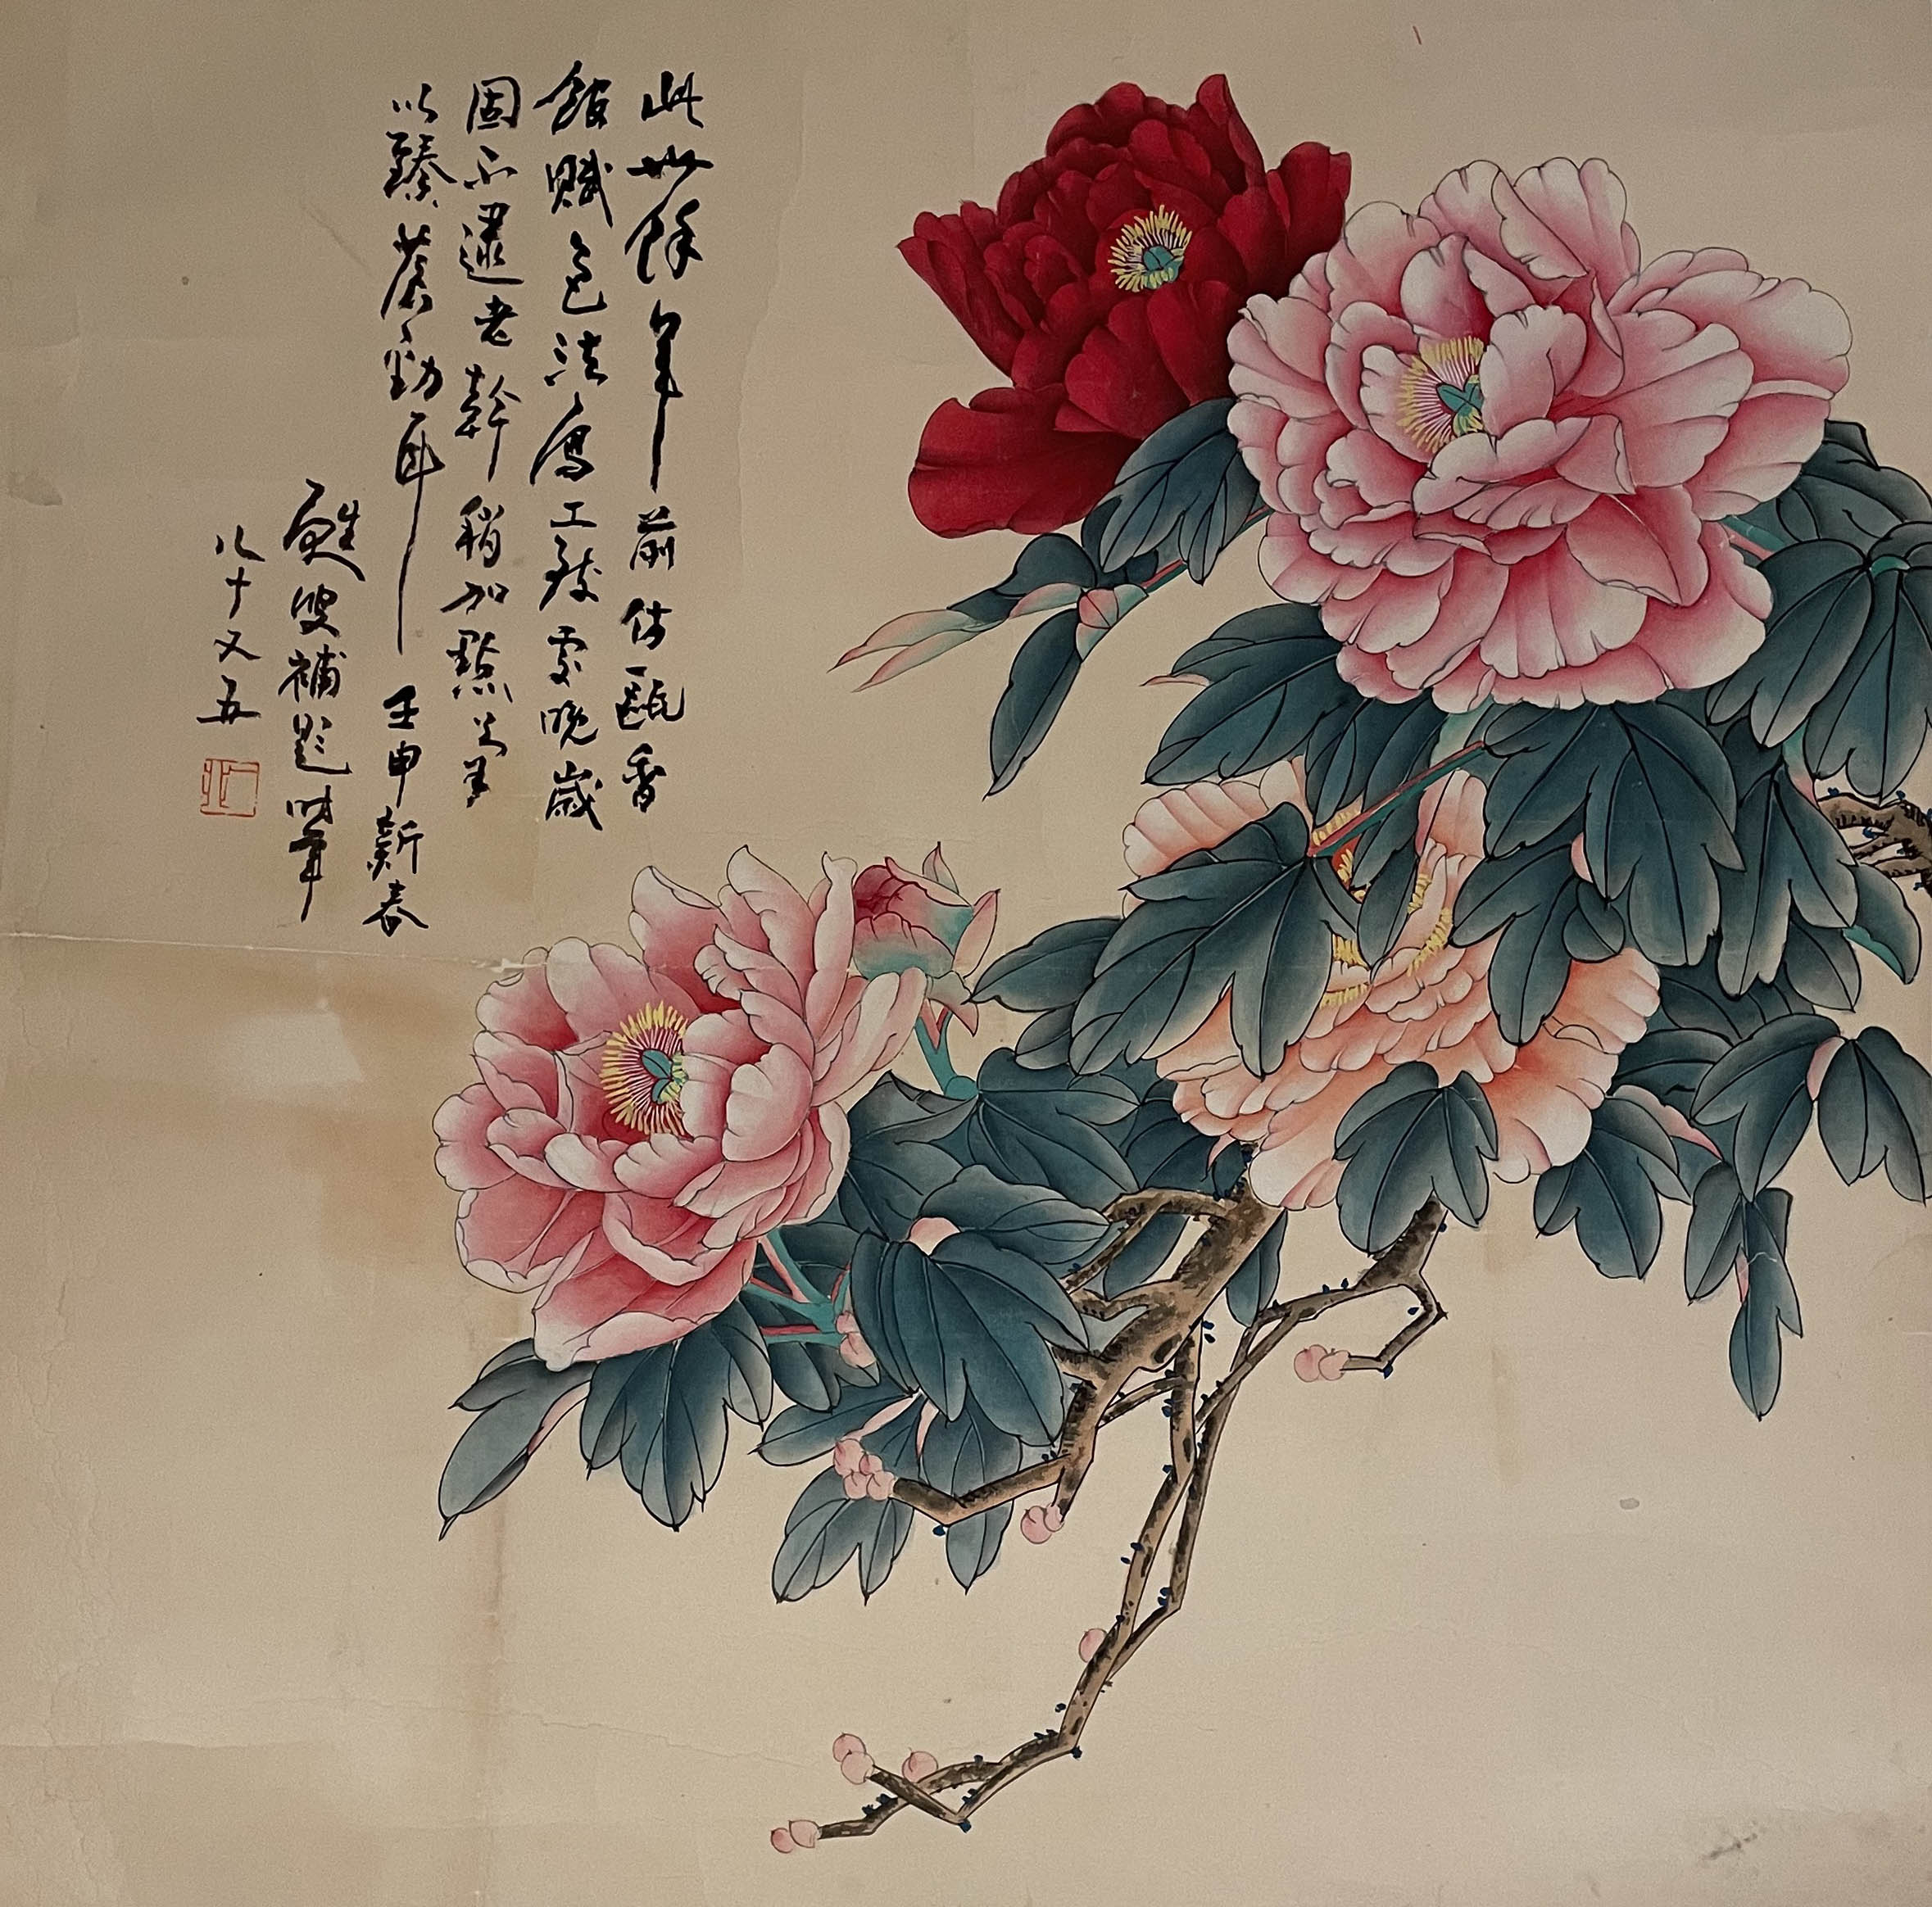 此卅餘年前仿甌香
館賦色法為工致處晚歲
固不逮老幹稍加點
以臻蒼勁耳 壬申新春
叟補題時年
八十又五